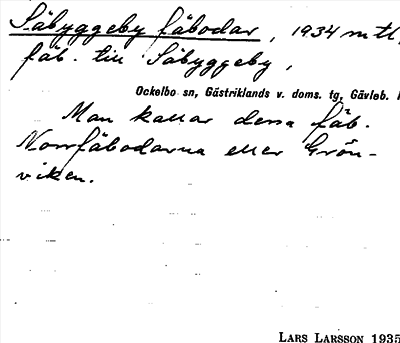 Säbyggeby fäbodar, 1934 mtl,
fäb. till Säbyggeby,
Ockelbo sn, Gästriklands v. doms. tg, Gävleb. l
Man kallar dessa fäb.
Norrfäbodarna eller Grön-
viken.
LARS LARSSON 1935